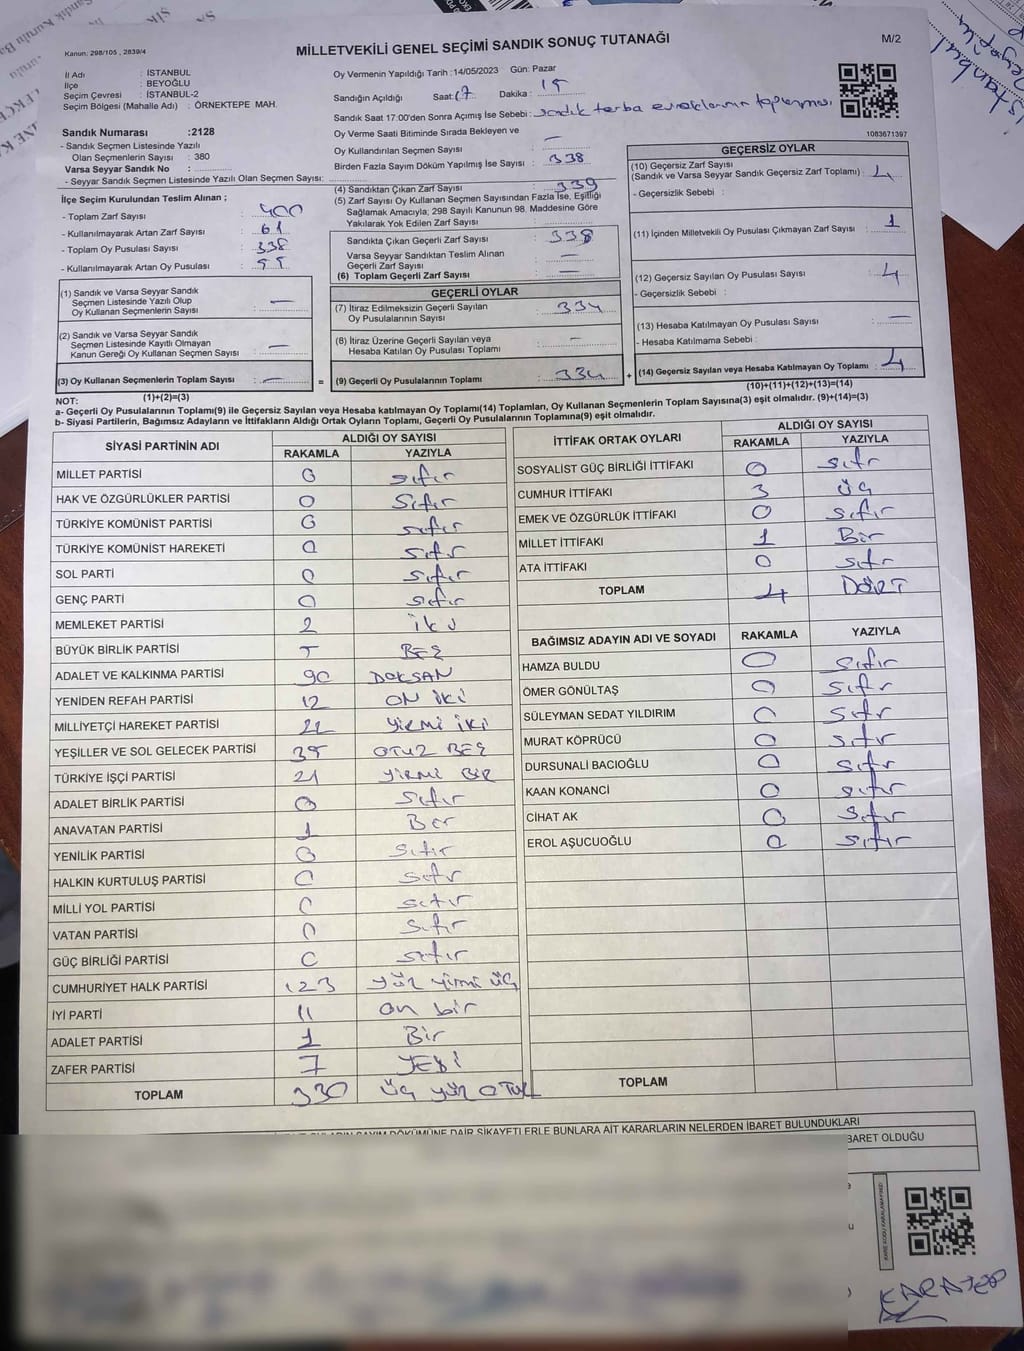 Kanun: 298/105 , 2839/4
MİLLETVEKİLİ GENEL SEÇİMİ SANDIK SONUÇ TUTANAĞI
M/2
İl Adı : İSTANBUL
İlçe : BEYOĞLU
Seçim Çevresi : İSTANBUL-2
Seçim Bölgesi (Mahalle Adı) : ÖRNEKTEPE MAH.
Oy Vermenin Yapıldığı Tarih :14/05/2023 Gün: Pazar
Sandığın Açıldığı Saat: 17 Dakika : 15
Sandık Saat 17:00'den Sonra Açımış İse Sebebi : sandık torba evraklarının toplanması
Oy Verme Saati Bitiminde Sırada Bekleyen ve
Oy Kullandırılan Seçmen Sayısı : —
Birden Fazla Sayım Döküm Yapılmış İse Sayısı : 338
1083671397
Sandık Numarası :2128
- Sandık Seçmen Listesinde Yazılı
Olan Seçmenlerin Sayısı : 380
Varsa Seyyar Sandık No :
- Seyyar Sandık Seçmen Listesinde Yazılı Olan Seçmen Sayısı:
İlçe Seçim Kurulundan Teslim Alınan ;
- Toplam Zarf Sayısı : 400
- Kullanılmayarak Artan Zarf Sayısı : 61
- Toplam Oy Pusulası Sayısı : 338
- Kullanılmayarak Artan Oy Pusulası : 55
(1) Sandık ve Varsa Seyyar Sandık
Seçmen Listesinde Yazılı Olup
Oy Kullanan Seçmenlerin Sayısı : —
(2) Sandık ve Varsa Seyyar Sandık
Seçmen Listesinde Kayıtlı Olmayan
Kanun Gereği Oy Kullanan Seçmen Sayısı : —
(3) Oy Kullanan Seçmenlerin Toplam Sayısı : —
(1)+(2)=(3)
(4) Sandıktan Çıkan Zarf Sayısı : 339
(5) Zarf Sayısı Oy Kullanan Seçmen Sayısından Fazla İse, Eşitliği
Sağlamak Amacıyla; 298 Sayılı Kanunun 98. Maddesine Göre
Yakılarak Yok Edilen Zarf Sayısı :
Sandıkta Çıkan Geçerli Zarf Sayısı : 338
Varsa Seyyar Sandıktan Teslim Alınan
Geçerli Zarf Sayısı : —
(6) Toplam Geçerli Zarf Sayısı : —
GEÇERLİ OYLAR
(7) İtiraz Edilmeksizin Geçerli Sayılan
Oy Pusulalarının Sayısı : 334
(8) İtiraz Üzerine Geçerli Sayılan veya
Hesaba Katılan Oy Pusulası Toplamı : —
= (9) Geçerli Oy Pusulalarının Toplamı : 334 +
GEÇERSİZ OYLAR
(10) Geçersiz Zarf Sayısı
(Sandık ve Varsa Seyyar Sandık Geçersiz Zarf Toplamı) : 4
- Geçersizlik Sebebi :
(11) İçinden Milletvekili Oy Pusulası Çıkmayan Zarf Sayısı : 1
(12) Geçersiz Sayılan Oy Pusulası Sayısı : 4
- Geçersizlik Sebebi :
(13) Hesaba Katılmayan Oy Pusulası Sayısı : —
- Hesaba Katılmama Sebebi :
(14) Geçersiz Sayılan veya Hesaba Katılmayan Oy Toplamı : 4
(10)+(11)+(12)+(13)=(14)
NOT:
a- Geçerli Oy Pusulalarının Toplamı(9) ile Geçersiz Sayılan veya Hesaba katılmayan Oy Toplamı(14) Toplamları, Oy Kullanan Seçmenlerin Toplam Sayısına(3) eşit olmalıdır. (9)+(14)=(3)
b- Siyasi Partilerin, Bağımsız Adayların ve İttifakların Aldığı Ortak Oyların Toplamı, Geçerli Oy Pusulalarının Toplamına(9) eşit olmalıdır.
SİYASİ PARTİNİN ADI ALDIĞI OY SAYISI
RAKAMLA YAZIYLA
MİLLET PARTİSİ 0 sıfır
HAK VE ÖZGÜRLÜKLER PARTİSİ 0 Sıfır
TÜRKİYE KOMÜNİST PARTİSİ 0 sıfır
TÜRKİYE KOMÜNİST HAREKETİ 0 sıfır
SOL PARTİ 0 sıfır
GENÇ PARTİ 0 sıfır
MEMLEKET PARTİSİ 2 iki
BÜYÜK BİRLİK PARTİSİ 5 BEŞ
ADALET VE KALKINMA PARTİSİ 90 DOKSAN
YENİDEN REFAH PARTİSİ 12 ON İKİ
MİLLİYETÇİ HAREKET PARTİSİ 22 YİRMİ İKİ
YEŞİLLER VE SOL GELECEK PARTİSİ 35 OTUZ BEŞ
TÜRKİYE İŞÇİ PARTİSİ 21 YİRMİ BİR
ADALET BİRLİK PARTİSİ 0 Sıfır
ANAVATAN PARTİSİ 1 Bir
YENİLİK PARTİSİ 0 Sıfır
HALKIN KURTULUŞ PARTİSİ 0 sıfır
MİLLİ YOL PARTİSİ 0 sıfır
VATAN PARTİSİ 0 sıfır
GÜÇ BİRLİĞİ PARTİSİ 0 sıfır
CUMHURİYET HALK PARTİSİ 123 yüz yirmi üç
İYİ PARTİ 11 on bir
ADALET PARTİSİ 1 Bir
ZAFER PARTİSİ 7 YEDİ
TOPLAM 330 üç yüz OTUZ
İTTİFAK ORTAK OYLARI ALDIĞI OY SAYISI
RAKAMLA YAZIYLA
SOSYALİST GÜÇ BİRLİĞİ İTTİFAKI 0 sıfır
CUMHUR İTTİFAKI 3 üç
EMEK VE ÖZGÜRLÜK İTTİFAKI 0 sıfır
MİLLET İTTİFAKI 1 Bir
ATA İTTİFAKI 0 sıfır
TOPLAM 4 DÖRT
BAĞIMSIZ ADAYIN ADI VE SOYADI RAKAMLA YAZIYLA
HAMZA BULDU 0 sıfır
ÖMER GÖNÜLTAŞ 0 sıfır
SÜLEYMAN SEDAT YILDIRIM 0 sıfır
MURAT KÖPRÜCÜ 0 sıfır
DURSUNALİ BACIOĞLU 0 sıfır
KAAN KONANCİ 0 sıfır
CİHAT AK 0 sıfır
EROL AŞUCUOĞLU 0 sıfır
TOPLAM
SAYIM DÖKÜMÜNE DAİR ŞİKAYETLERLE BUNLARA AİT KARARLARIN NELERDEN İBARET BULUNDUKLARI
İBARET OLDUĞU
KARE KODU KARALAMAYINIZ!